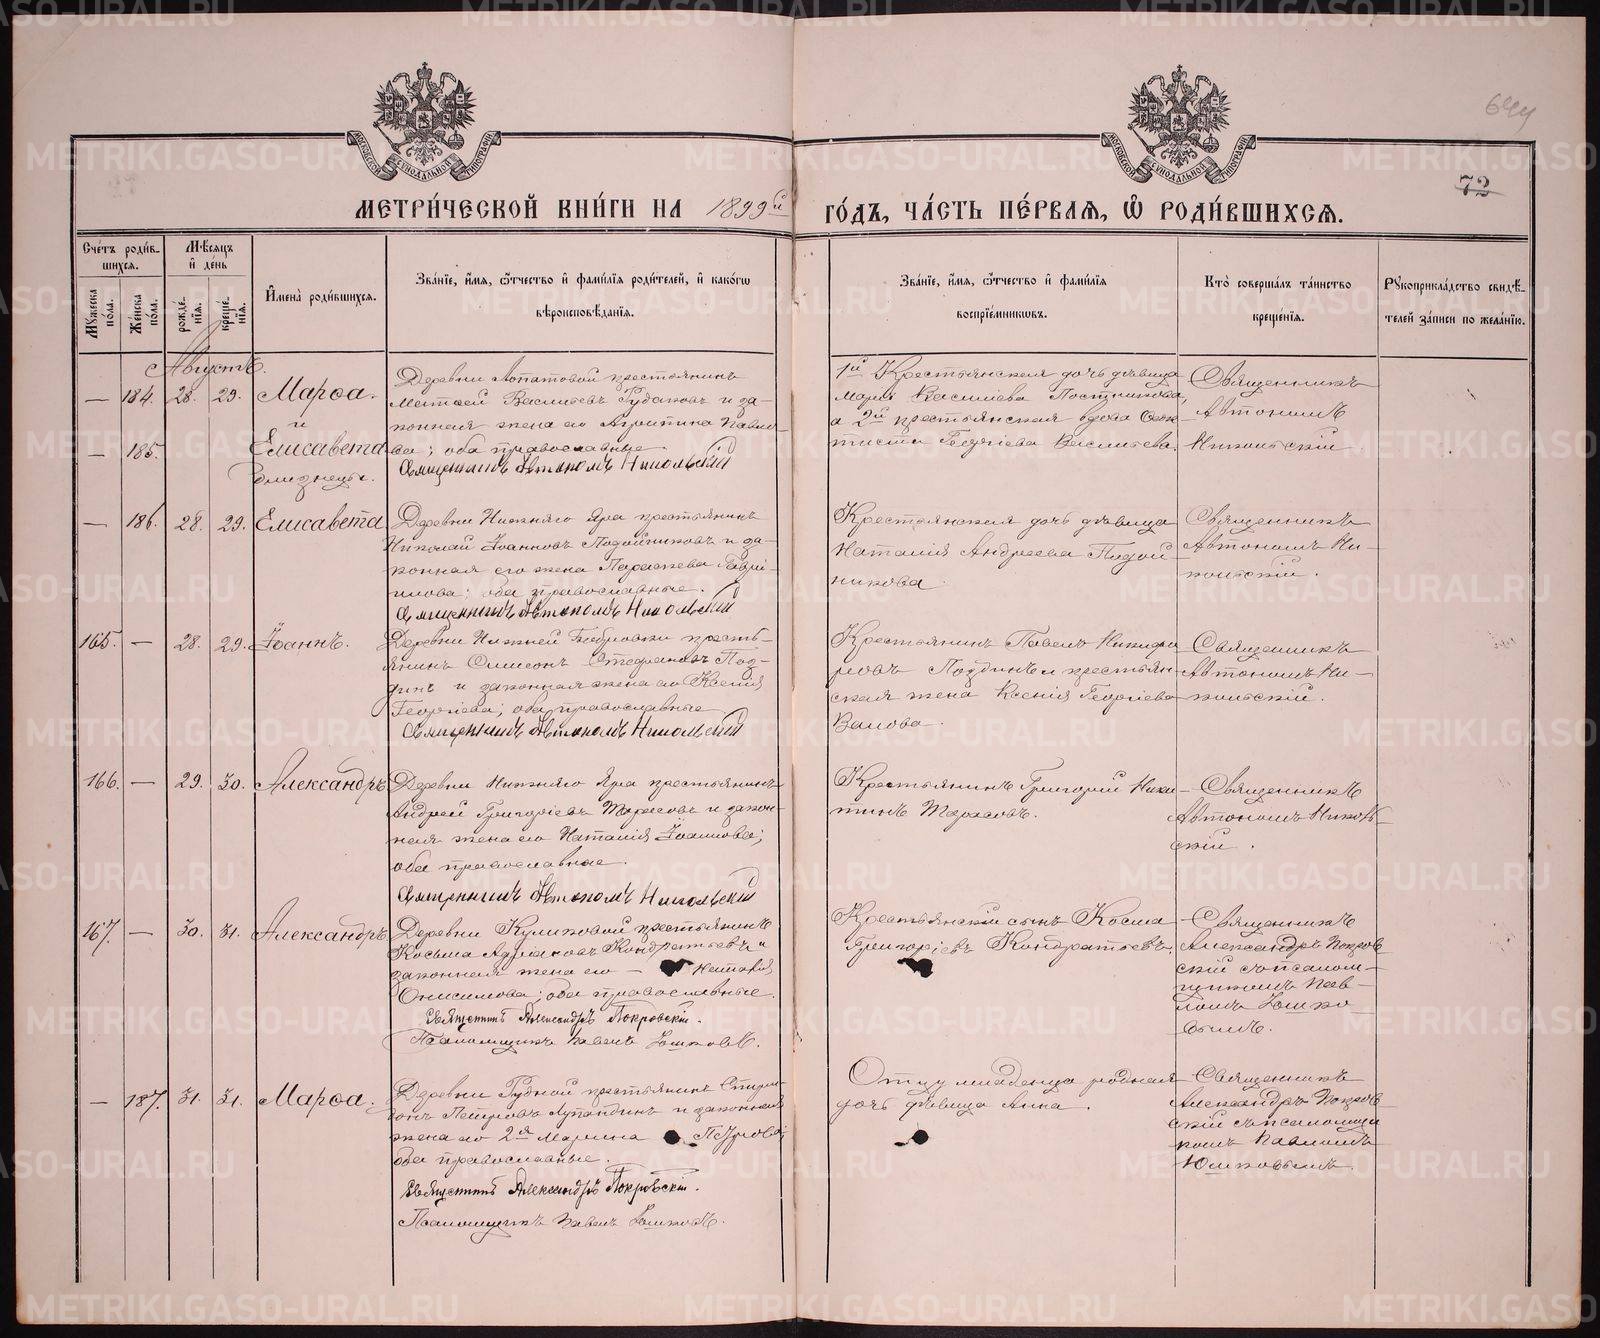 644
72
МЕТРИ́ЧЕСКОЙ КНИ́ГИ НА 1899й ГО́ДЪ, ЧА́СТЬ ПЕ́РВАЯ, Ѡ҆ РОДИ́ВШИХСЯ.
Сче́тъ роди́в-
шихся.
Мꙋ́жеска по́ла.
Же́нска по́ла.
Мѣ́сяцъ
и҆ де́нь
рожде́нїя.
креще́нїя.
И҆мена̀ роди́вшихся.
Зва́нїе, и҆́мя, ѻ҆́тчество и҆ фами́лїя роди́телей, и҆ како́гѡ
вѣроисповѣ́данїя.
Зва́нїе, и҆́мя, ѻ҆́тчество и҆ фами́лїя
воспрїе́мникѡвъ.
Кто̀ соверша́лъ та́инство
креще́нїя.
Рꙋкоприкла́дство свидѣ́-
телей за́писи по жела́нїю.
Августъ.
— 184. 28. 29. Марѳа.
и
— 185. Елисавета
близнецы.
Деревни Лопатовой крестьянинъ
Матѳей Васильевъ Рудаковъ и за-
конная жена его Агрипина Павло-
ва; оба православные
Священникъ Автономъ Никольскій
1й Крестьянская дочь дѣвица
Марія Васильева Постникова,
а 2й крестьянская вдова
Георгіева Васильева.
Священникъ
Автономъ
Никольскій
— 186. 28. 29. Елисавета
Деревни Нижняго Яра крестьянинъ
Николай Іоанновъ Подойниковъ и за-
конная его жена Параскева Гаврі-
илова; оба православные.
Священникъ Автономъ Никольскій
Крестьянская дочь дѣвица
Наталія Андреева Подой
никова.
Священникъ
Автономъ Ни-
кольскій.
165. — 28. 29. Іоаннъ.
Деревни Нижней Бобровки кресть-
янинъ Симеонъ Стефановъ Поз-
динъ и законная жена его Ксенія
Георгіева; оба православные.
Священникъ Автономъ Никольскій
Крестьянинъ Павелъ Никифо
ровъ Поздинъ и крестьян-
ская жена Ксенія Георгіева
Валова.
Священникъ
Автономъ Ни-
кольскій.
166. — 29. 30. Александръ
Деревни Нижняго Яра крестьянинъ
Андрей Григоріевъ Тарасовъ и закон-
ная жена его Наталія Іоаннова;
оба православные.
Священникъ Автономъ Никольскій
Крестьянинъ Григорій Ники
тинъ Тарасовъ.
Священникъ
Автономъ Николь
скій.
167. — 30. 31. Александръ
Деревни Куликовой крестьянинъ
Косьма Адріановъ Кондратьевъ и
законная жена его — Наталія
Онисимова; оба православные.
Священникъ Александръ Покровскій.
Псаломщикъ Павелъ Юшковъ.
Крестьянскій сынъ Косма
Григорьевъ Кондратьевъ.
Священникъ
Александръ Покров
скій съ псалом-
щикомъ Пав-
ломъ Юшко
вымъ.
— 187. 31. 31. Марѳа.
Деревни Рудной крестьянинъ Спири-
донъ Петровъ Лупандинъ и законная
жена его 2я Марина Петрова;
оба православные.
Священникъ Александръ Покровскій.
Псаломщикъ Павелъ Юшковъ.
Отцу младенца родная
дочь дѣвица Анна.
Священникъ
Александръ Покров
скій съ псаломщи
комъ Павломъ
Юшковымъ.